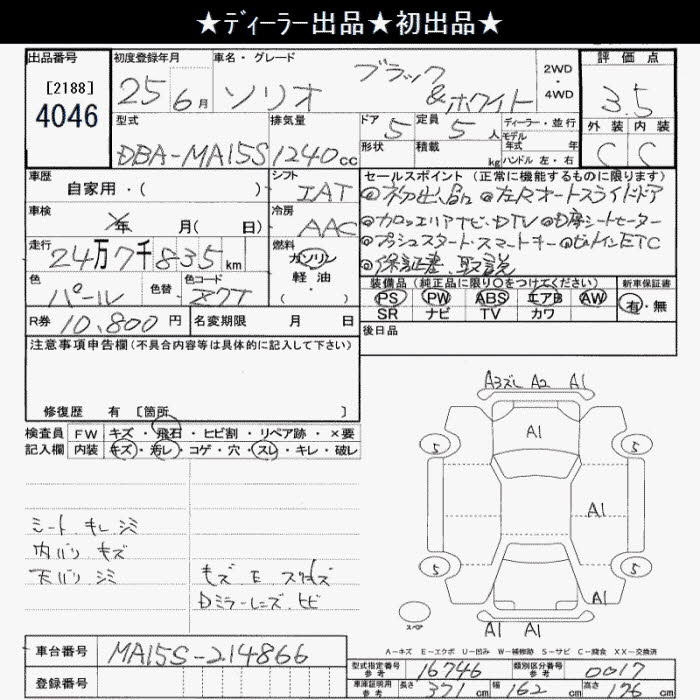 ★ディーラー出品★初出品★
出品番号 初度登録年月 車名・グレード 評価点
[2188] 4046 25年6月 ソリオ ブラック&ホワイト 2WD・4WD 3.5
型式 排気量 ドア 5 定員 5人 ディーラー・並行 外装 内装
DBA-MA15S 1240cc 形状 積載 kg モデル年式 年 C C
ハンドル 左・右
車歴 シフト セールスポイント (正常に機能するものに限ります)
自家用・( ) IAT ◎初出品 ◎左Rオートスライドドア
車検 年 月( 日) 冷房 AAC ◎カロッツェリアナビ・DTV ◎D席シートヒーター
走行 24万7千835km 燃料 ガソリン 軽油・( ) ◎プッシュスタート・スマートキー ◎ビルトインETC
◎保証書、取説
色 パール 色替 色コード Z7T
装備品 (純正品に限り○をつけてください) 新車保証書
PS PW ABS エアB AW 有・無
SR ナビ TV カワ
R券 10,800円 名変期限 月 日 後日品
注意事項申告欄 (不具合内容等は具体的に記入して下さい)
修復歴 有 [箇所 ]
検査員記入欄 FW キズ・飛石・ヒビ割・リペア跡・×要
内装 キズ・汚レ・コゲ・穴・スレ・キレ・破レ
A3ズレ A2 A1
A1
5 5
A1
5 5
A1
スペア
A1 A1
シート キレ シミ
内バリ キズ
天バリ シミ
キズ E スリキズ
Dミラーレンズ ヒビ
A-キズ E-エクボ U-凹み W-補修跡 S-サビ C-腐食 XX-交換済
車台番号 MA15S-214866
登録番号
型式指定番号 参考 16746 類別区分番号 参考 0017
車庫証明用 参考 長さ 371cm 幅 162cm 高さ 176cm